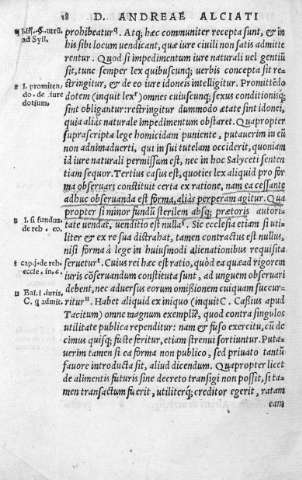 18 D. ANDREAE ALCIATI
prohibeatur. Atq; haec communiter recepta sunt, & in
his sibi locum uendicant, quae iure civili non satis admitte
rentur. Quod si impedimentum iure naturali uel gentiũ
sit, tunc semper lex quibuscunq; uerbis concepta sit re
stringitur, & de eo iure idoneis intelligitur. Promittẽdo
dotem (inquit lex) omnes cuiuscunq; sexus conditionisq;
sint obligantur: restringitur dummodo aetate sint idonei,
quia alias naturale impedimentum obstaret. Quapropter
suprascripta lege homicidam puniente, putauerim in eũ
non adnimaduerti, qui in sui tutelam occiderit, quoniam
id iure naturali permissum est, nec in hoc Salyceti senten
tiam sequor. Tertius casus est, quoties lex aliquid pro for
ma obseruari constituit certa ex ratione, nam ea cessante
adhuc obseruanda est forma, aliâs perperam agitur. Qua
propter si minor fundũ sterilem absq; praetoris autori
tate uendat, uenditio est nulla. Sic ecclesia etiam si uti
liter & ex re sua distrahat, tamen contractus est nullus,
nisi forma à lege in huiusmodi alienationibus requisita
seruetur. Cuius rei haec est ratio, quòd ea quae ad rigorem
iuris cõseruandum constituta sunt, ad unguem obseruari
debent, nec aduersus eorum omissionem cuiquam succur
ritur. Habet aliquid ex iniquo (inquit C. Cassius apud
Tacitum) omne magnum exemplũ, quod contra singulos
utilitate publica rependitur: nam & fuso exercitu, cũ de
cimus quisq; fuste feritur, etiam strenui sortiuntur. Puta
uerim tamen si ea forma non publico, sed priuato tantũ
fauore introducta sit, aliud dicendum. Quapropter licet
de alimentis futuris sine decreto transigi non possit, si ta
men transactum fuerit, utiliterq; creditor egerit, ratam
eam
ad Syll.
l. promitten
do. de iure
dotium.
l. si fundus.
de reb. eo.
cap. j. de reb.
eccle. in. 6.
C. q admit.